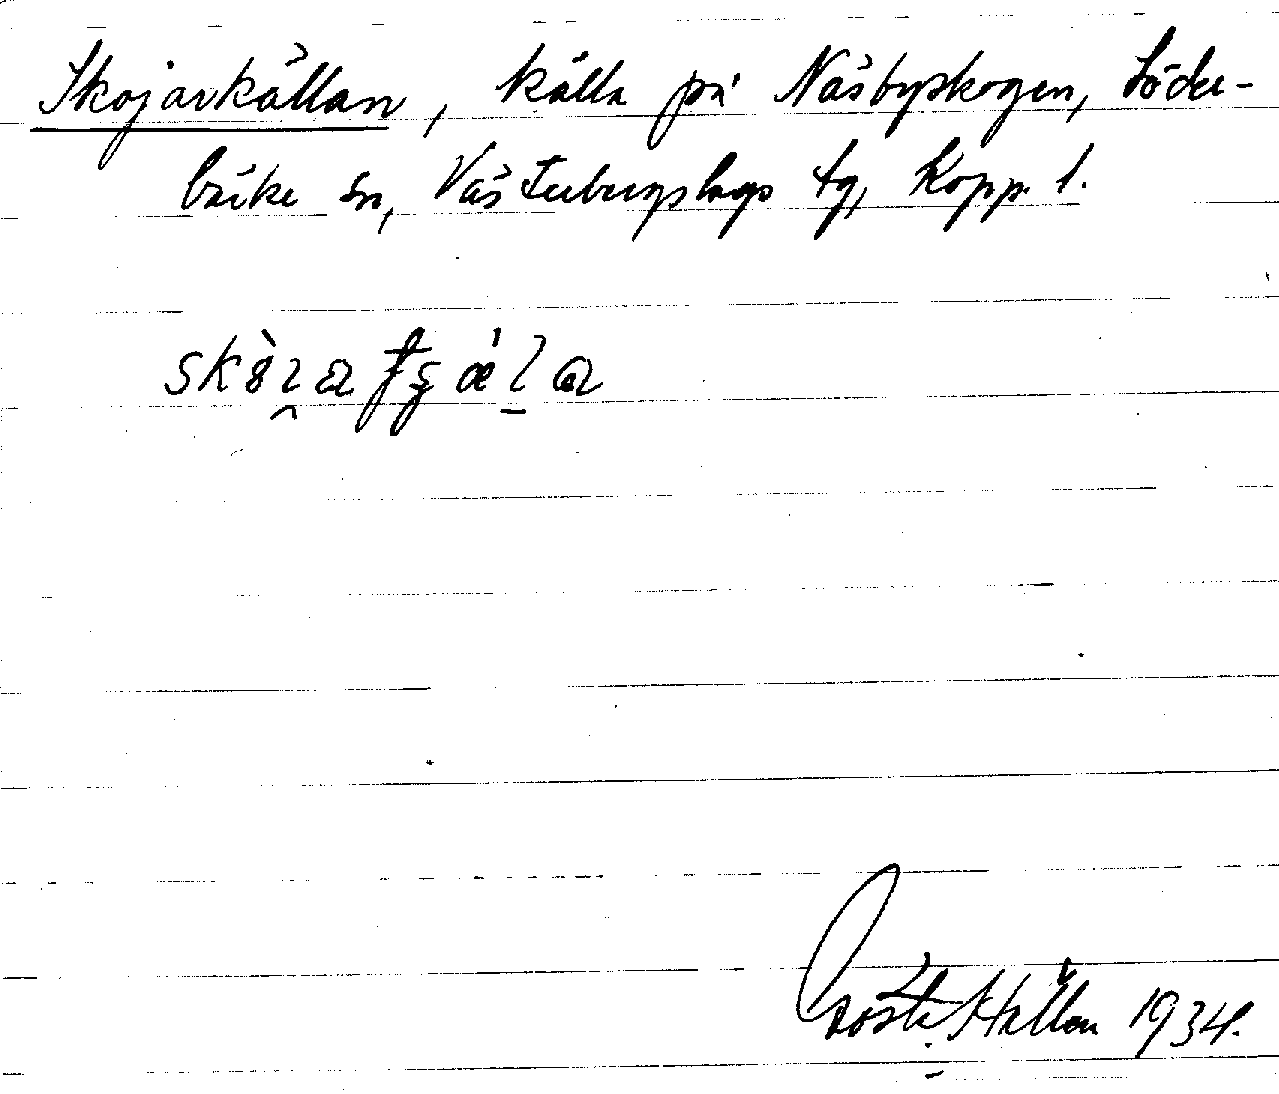 Skojarkällan, källa på Näsbyskogen, Söder-
bärke sn, Västerbergslags tg, Kopp. l.
Gösta Hallén 1934.